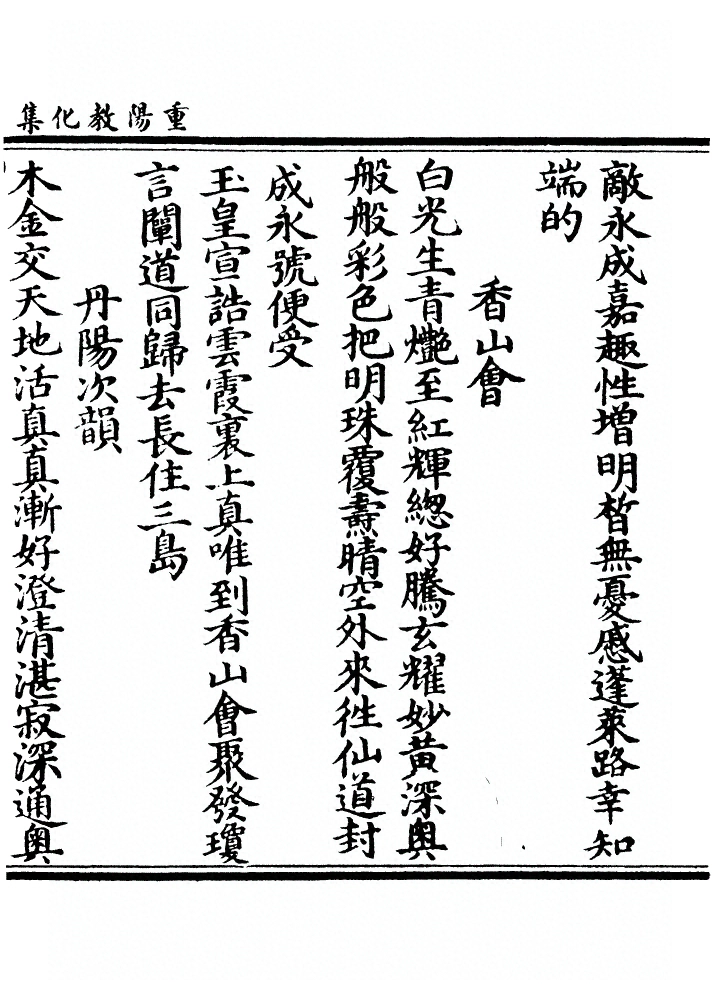 重陽教化集
敵永成嘉趣性增明晳無憂慼蓬萊路幸知
端的
香山會
白光生青艷至紅輝總好騰玄耀妙黃深奧
般般彩色把明珠覆燾晴空外來徃仙道封
成永號便受
玉皇宣誥雲霞裏上真唯到香山會聚發瓊
言闡道同歸去長住三島
丹陽次韻
木金交天地活真真漸好澄清湛寂深通奧